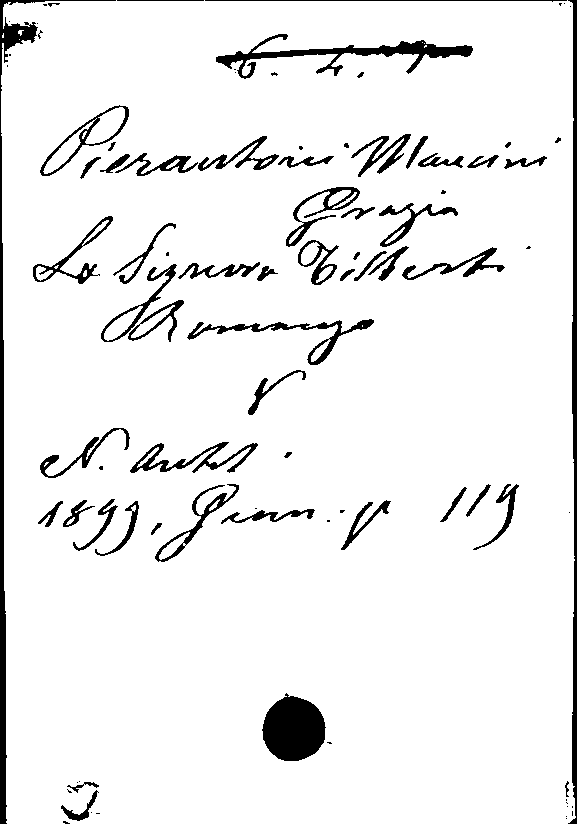 6. 4. 9
Pierantoni Mancini
Grazia
La Signora Tilberti
Romanzo
V
N. Antol.
1899, Genn. p 119